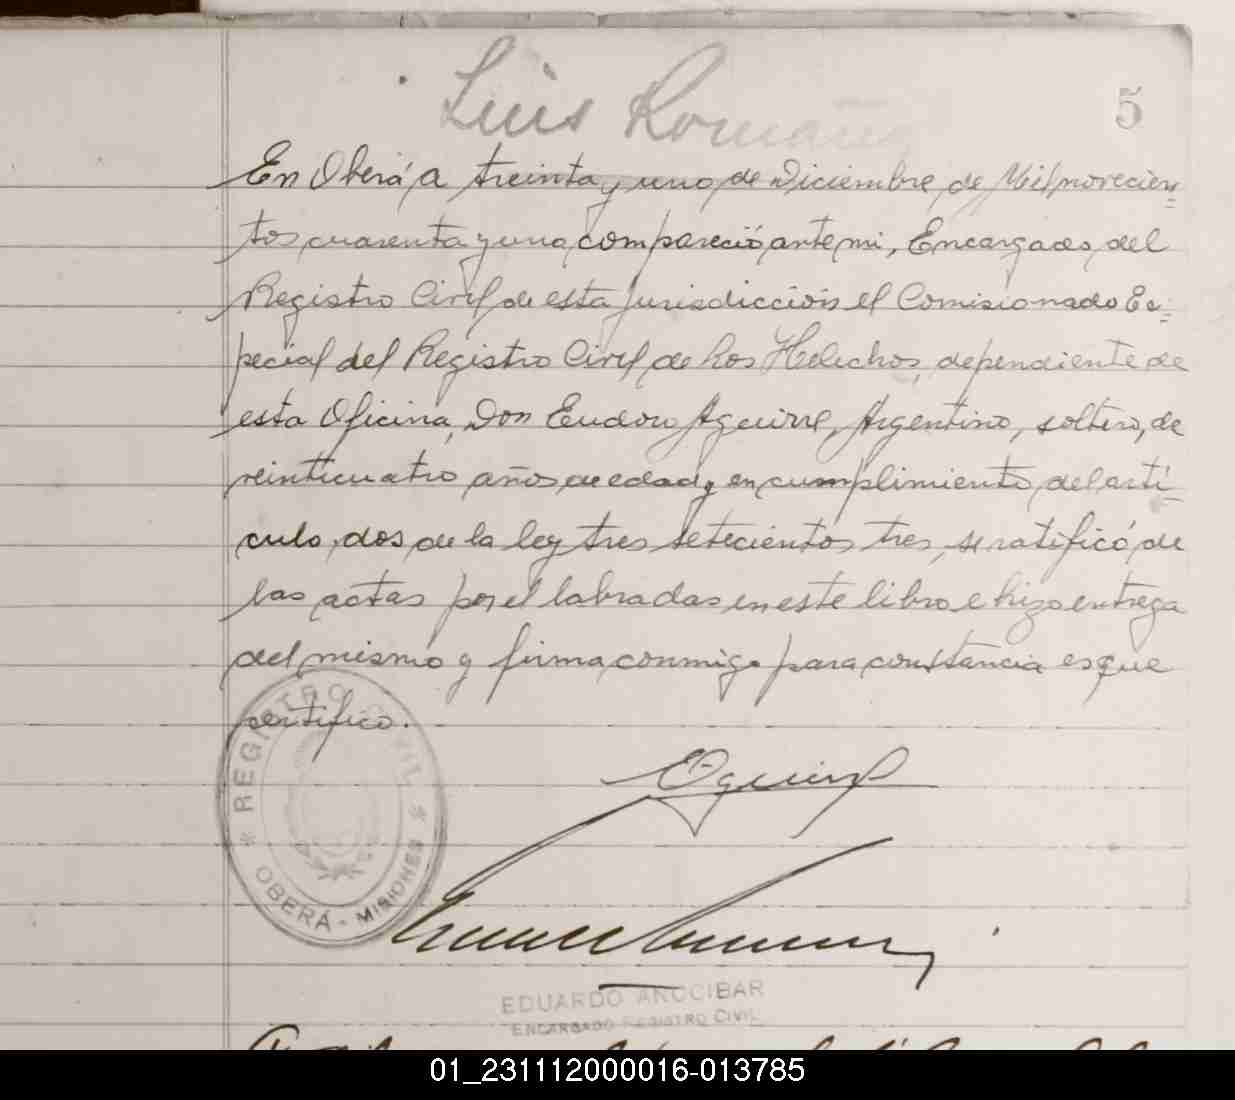 Luis Romaña
5
En Oberá a treinta y uno de Diciembre de Mil novecien=
tos cuarenta y uno, compareció ante mi, Encargado del
Registro Civil de esta jurisdicción el Comisionado Es=
pecial del Registro Civil de Los Helechos, dependiente de
esta Oficina, Don Eudoro Aguirre, Argentino, soltero, de
veinticuatro años de edad y en cumplimiento del arti-
culo dos de la ley tres setecientos tres, se ratificó de
las actas por el labradas en este libro e hizo entrega
del mismo y firma conmigo para constancia es que
certifico.
REGISTRO CIVIL
OBERÁ - MISIONES
EDUARDO ANOCIBAR
ENCARGADO REGISTRO CIVIL
01_231112000016-013785